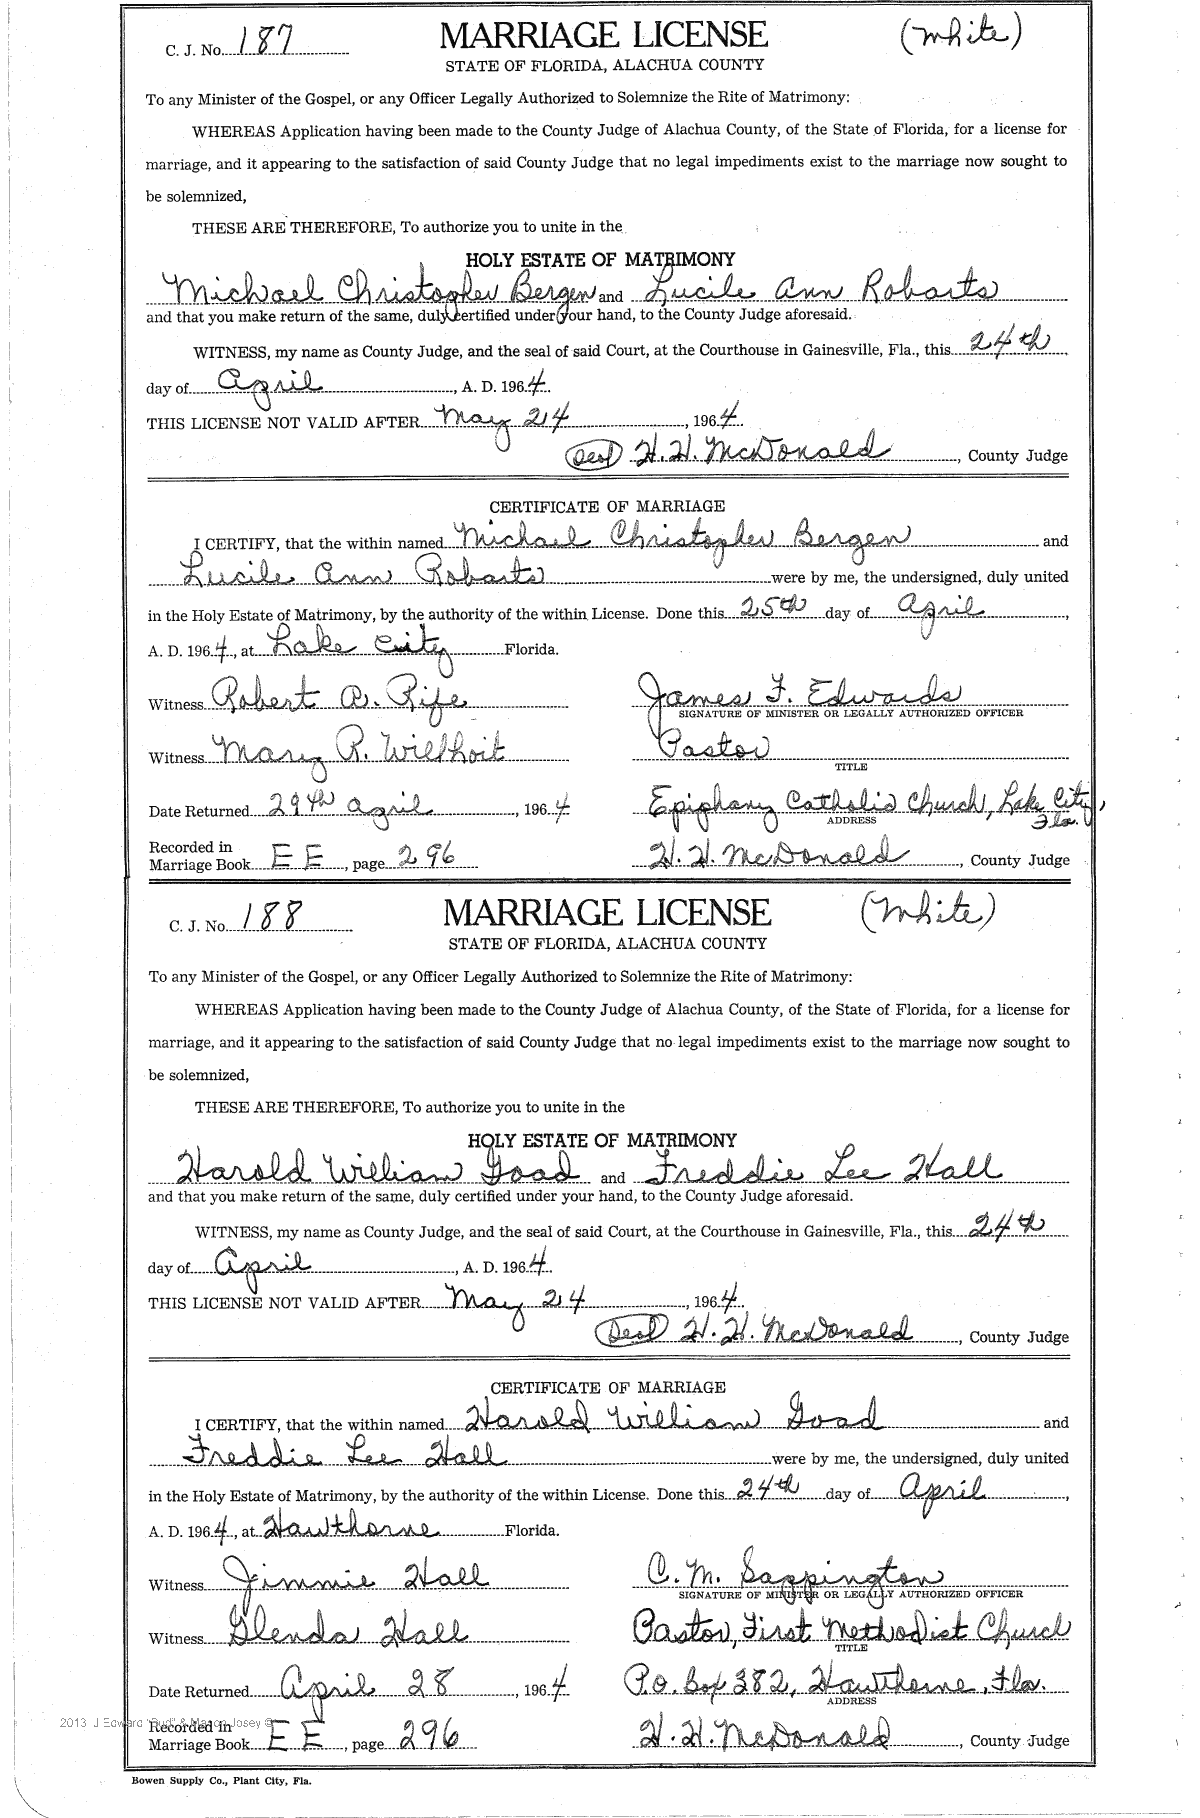 C. J. No. 187 MARRIAGE LICENSE (White)
STATE OF FLORIDA, ALACHUA COUNTY
To any Minister of the Gospel, or any Officer Legally Authorized to Solemnize the Rite of Matrimony:
WHEREAS Application having been made to the County Judge of Alachua County, of the State of Florida, for a license for
marriage, and it appearing to the satisfaction of said County Judge that no legal impediments exist to the marriage now sought to
be solemnized,
THESE ARE THEREFORE, To authorize you to unite in the
HOLY ESTATE OF MATRIMONY
Michael Christopher Bergen and Lucile Ann Robarts
and that you make return of the same, duly certified under your hand, to the County Judge aforesaid.
WITNESS, my name as County Judge, and the seal of said Court, at the Courthouse in Gainesville, Fla., this 24th
day of April, A. D. 1964.
THIS LICENSE NOT VALID AFTER May 24, 1964.
(Seal) H. H. McDonald, County Judge
CERTIFICATE OF MARRIAGE
I CERTIFY, that the within named Michael Christopher Bergen and
Lucile Ann Robarts were by me, the undersigned, duly united
in the Holy Estate of Matrimony, by the authority of the within License. Done this 25th day of April,
A. D. 1964, at Lake City Florida.
Witness Robert A. Rife James F. Edwards
SIGNATURE OF MINISTER OR LEGALLY AUTHORIZED OFFICER
Witness Mary R. Wilhoit Pastor
TITLE
Date Returned 29th April, 1964 Epiphany Catholic Church, Lake City, Fla.
ADDRESS
Recorded in
Marriage Book EE, page 296 H. H. McDonald, County Judge
C. J. No. 188 MARRIAGE LICENSE (White)
STATE OF FLORIDA, ALACHUA COUNTY
To any Minister of the Gospel, or any Officer Legally Authorized to Solemnize the Rite of Matrimony:
WHEREAS Application having been made to the County Judge of Alachua County, of the State of Florida, for a license for
marriage, and it appearing to the satisfaction of said County Judge that no legal impediments exist to the marriage now sought to
be solemnized,
THESE ARE THEREFORE, To authorize you to unite in the
HOLY ESTATE OF MATRIMONY
Harold William Goad and Freddie Lee Hall
and that you make return of the same, duly certified under your hand, to the County Judge aforesaid.
WITNESS, my name as County Judge, and the seal of said Court, at the Courthouse in Gainesville, Fla., this 24th
day of April, A. D. 1964.
THIS LICENSE NOT VALID AFTER May 24, 1964.
(Seal) H. H. McDonald, County Judge
CERTIFICATE OF MARRIAGE
I CERTIFY, that the within named Harold William Goad and
Freddie Lee Hall were by me, the undersigned, duly united
in the Holy Estate of Matrimony, by the authority of the within License. Done this 24th day of April,
A. D. 1964, at Hawthorne Florida.
Witness Jimmie Hall C. M. Sappington
SIGNATURE OF MINISTER OR LEGALLY AUTHORIZED OFFICER
Witness Glenda Hall Pastor, First Methodist Church
TITLE
Date Returned April 28, 1964 P.O. Box 382, Hawthorne, Fla.
ADDRESS
2013 J Edward "Bud" & Mason Josey ©
Recorded in
Marriage Book EE, page 296 H. H. McDonald, County Judge
Bowen Supply Co., Plant City, Fla.